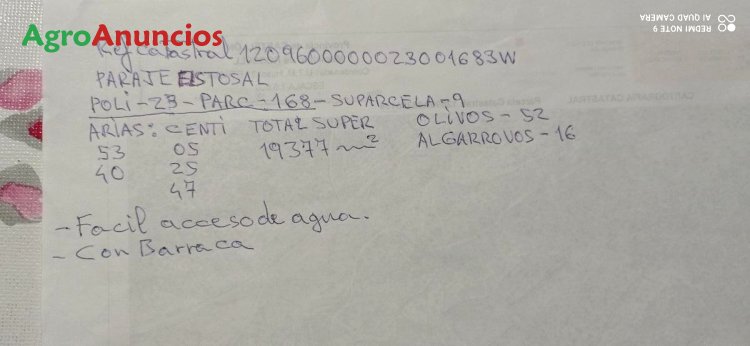 AgroAnuncios
REDMI NOTE 9
AI QUAD CAMERA
Ref Catastral 12096000000023001683W
PARAJE ESTOSAL
POLI-23-PARC-168-SUPARCELA-9
ARIAS: CENTI TOTAL SUPER OLIVOS-52
53 05 19377 m² ALGARROVOS-16
40 25
47
-Facil acceso de agua.
-Con Barraca